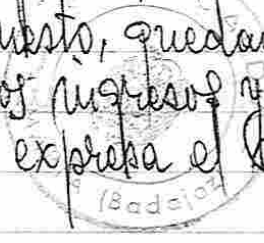 uesto, quedan
os ingresos y
expresa el
(Badajoz